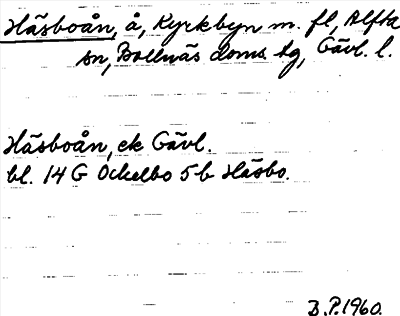 Häsboån, å, Kyrkbyn m. fl, Alfta
sn, Bollnäs doms. tg, Gävl. l.
Häsboån, ek Gävl.
bl. 14 G Ockelbo 5b Häsbo.
B.P.1960.